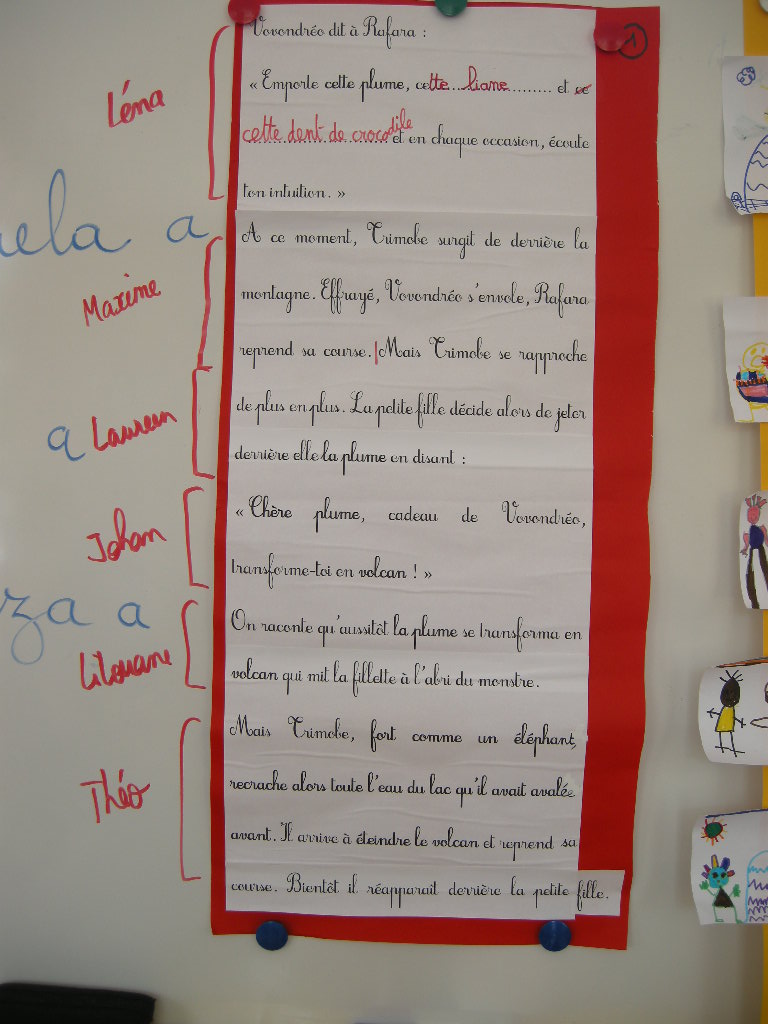 Vovondréo dit à Rafara :
1
« Emporte cette plume, cette liane et ce
cette dent de crocodile et en chaque occasion, écoute
ton intuition. »
Léna
A ce moment, Trimobe surgit de derrière la
montagne. Effrayé, Vovondréo s'envole, Rafara
reprend sa course. | Mais Trimobe se rapproche
Maxime
de plus en plus. La petite fille décide alors de jeter
derrière elle la plume en disant :
Laureen
« Chère plume, cadeau de Vovondréo,
transforme-toi en volcan ! »
Johan
On raconte qu'aussitôt la plume se transforma en
volcan qui mit la fillette à l'abri du monstre.
Lilouane
Mais Trimobe, fort comme un éléphant,
recrache alors toute l'eau du lac qu'il avait avalée
avant. Il arrive à éteindre le volcan et reprend sa
course. Bientôt il réapparait derrière la petite fille.
Théo
ela a
a
za a